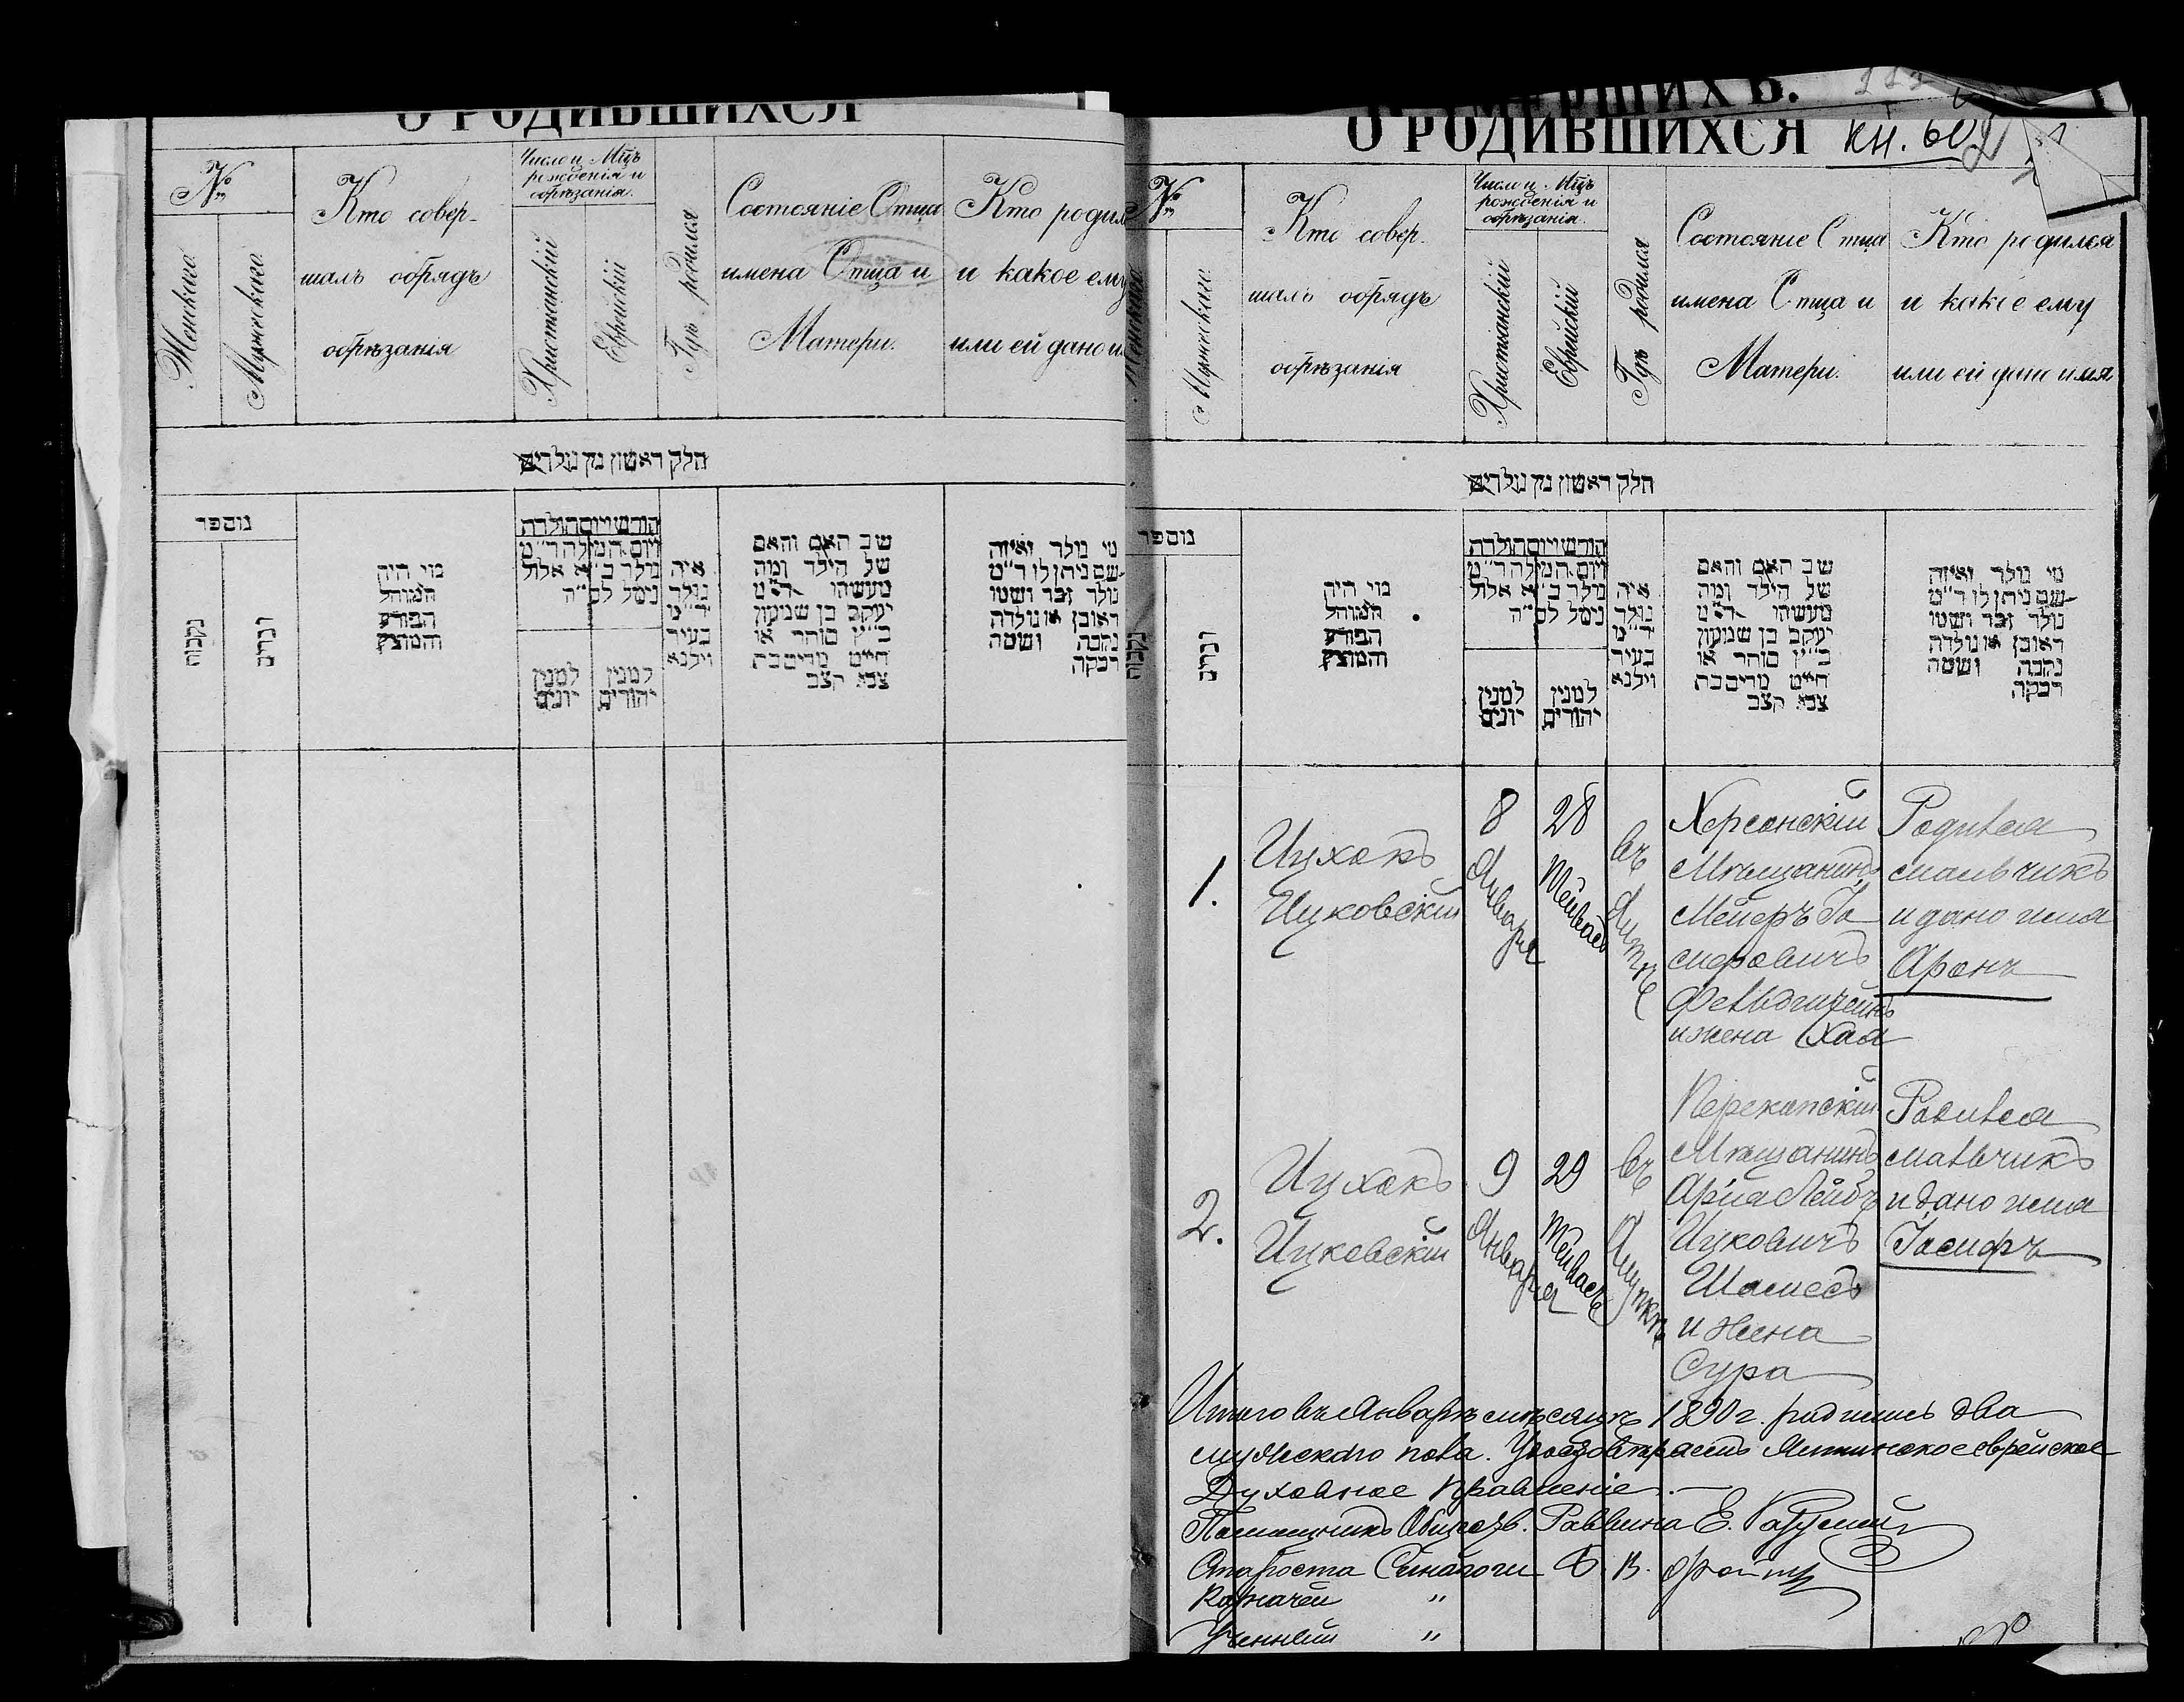 О РОДИВШИХСЯ
№
Женскаго
Мужескаго
Кто совер-
шалъ обрядъ
обрѣзанія
Число и Мцъ
рожденія и
обрѣзанія.
Христіанскій
Еврейскій
Гдѣ родился
Состояніе Отца
имена Отца и
Матери.
Кто родил
и какое ему
или ей дано и
חלק ראשון מן נולדים
נומפר
נקבות
זכרים
מי היה
המוהל
הפורע
והמוצץ
חודש ויום הולדת
ויום המילה ד״מ
נולד כ״א אלול
נימל לס״ה
למנין
יונים
למנין
יהודים
איה
נולד
ד״מ
בעיר
ווילנא
שב האם והאם
של הילד ומה
מעשהו ד״מ
יעקב בן שמעון
כ״ץ סוחר או
חייט מרים בת
צבי קצב
מי נולד ואיזה
שם ניתן לו ד״מ
נולד זכר ושמו
ראובן או נולדה
נקבה ושמה
רבקה
О РОДИВШИХСЯ кн. 602
№
Мужескаго
Кто совер-
шалъ обрядъ
обрѣзанія
Число и Мцъ
рожденія и
обрѣзанія.
Христіанскій
Еврейскій
Гдѣ родился
Состояніе Отца
имена Отца и
Матери.
Кто родился
и какое ему
или ей дано имя
חלק ראשון מן נולדים
נומפר
נקבות
זכרים
מי היה
המוהל
הפורע
והמוצץ
חודש ויום הולדת
ויום המילה ד״מ
נולד כ״א אלול
נימל לס״ה
למנין
יונים
למנין
יהודים
איה
נולד
ד״מ
בעיר
ווילנא
שב האם והאם
של הילד ומה
מעשהו ד״מ
יעקב בן שמעון
כ״ץ סוחר או
חייט מרים בת
צבי קצב
מי נולד ואיזה
שם ניתן לו ד״מ
נולד זכר ושמו
ראובן או נולדה
נקבה ושמה
רבקה
1.
Ицхокъ
Ицковскій
8
Января
28
Тейвасъ
въ
Ялтѣ
Херсонскій
Мѣщанинъ
Мейеръ Іо
сифовичъ
Фельдштейнъ
и жена Хая
Родился
мальчикъ
и дано имя
Аронъ
2.
Ицхокъ
Ицковскій
9
Января
29
Тейвасъ
въ
Алупкѣ
Перекопскій
Мѣщанинъ
Арія Лейбъ
Ицковичъ
Шамесъ
и жена
Сура
Родился
мальчикъ
и дано имя
Іосифъ
Итого въ Январѣ мѣсяцѣ 1890 г. родились два
мужескаго пола. Удостовѣряетъ Ялтинское еврейское
Духовное Правленіе.
Помощникъ Обществ. Раввина Е.
Староста Синагоги
Казначей "
Ученный "